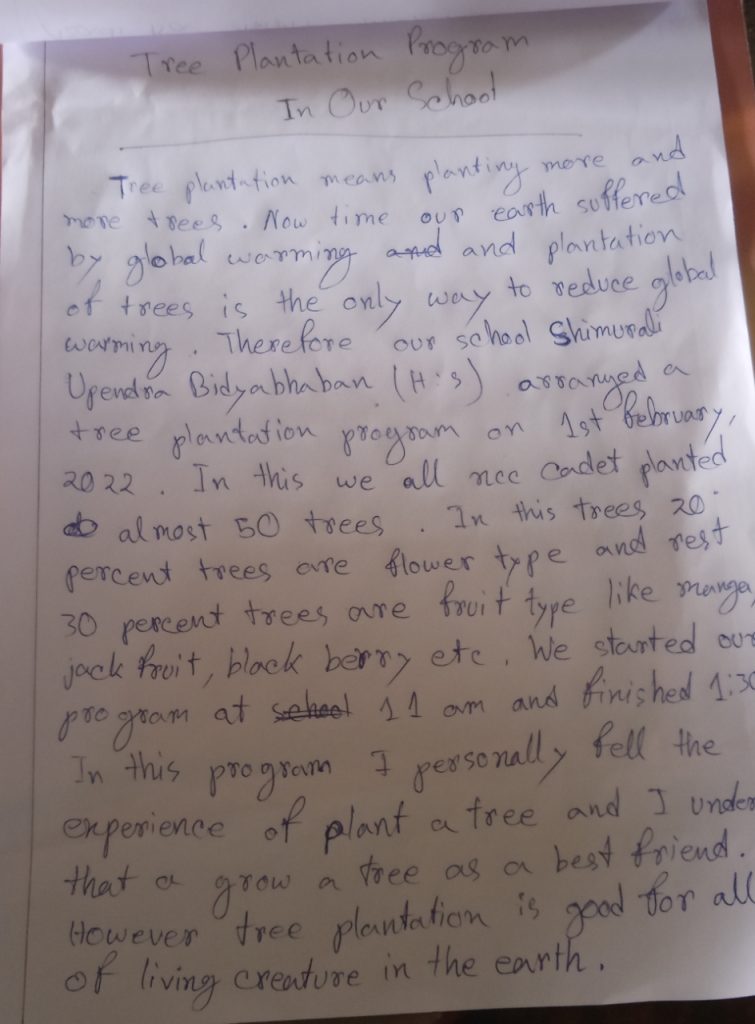 Tree Plantation Program
In Our School
Tree plantation means planting more and
more trees. Now time our earth suffered
by global warming and and plantation
of trees is the only way to reduce global
warming. Therefore our school Shimurali
Upendra Bidyabhaban (H.S) arranged a
tree plantation program on 1st February,
2022. In this we all ncc cadet planted
almost 50 trees. In this trees 20
percent trees are flower type and rest
30 percent trees are fruit type like mango,
jack fruit, black berry etc. We started our
program at school 11 am and finished 1:30
In this program I personally fell the
experience of plant a tree and I under
that a grow a tree as a best friend.
However tree plantation is good for all
of living creature in the earth.